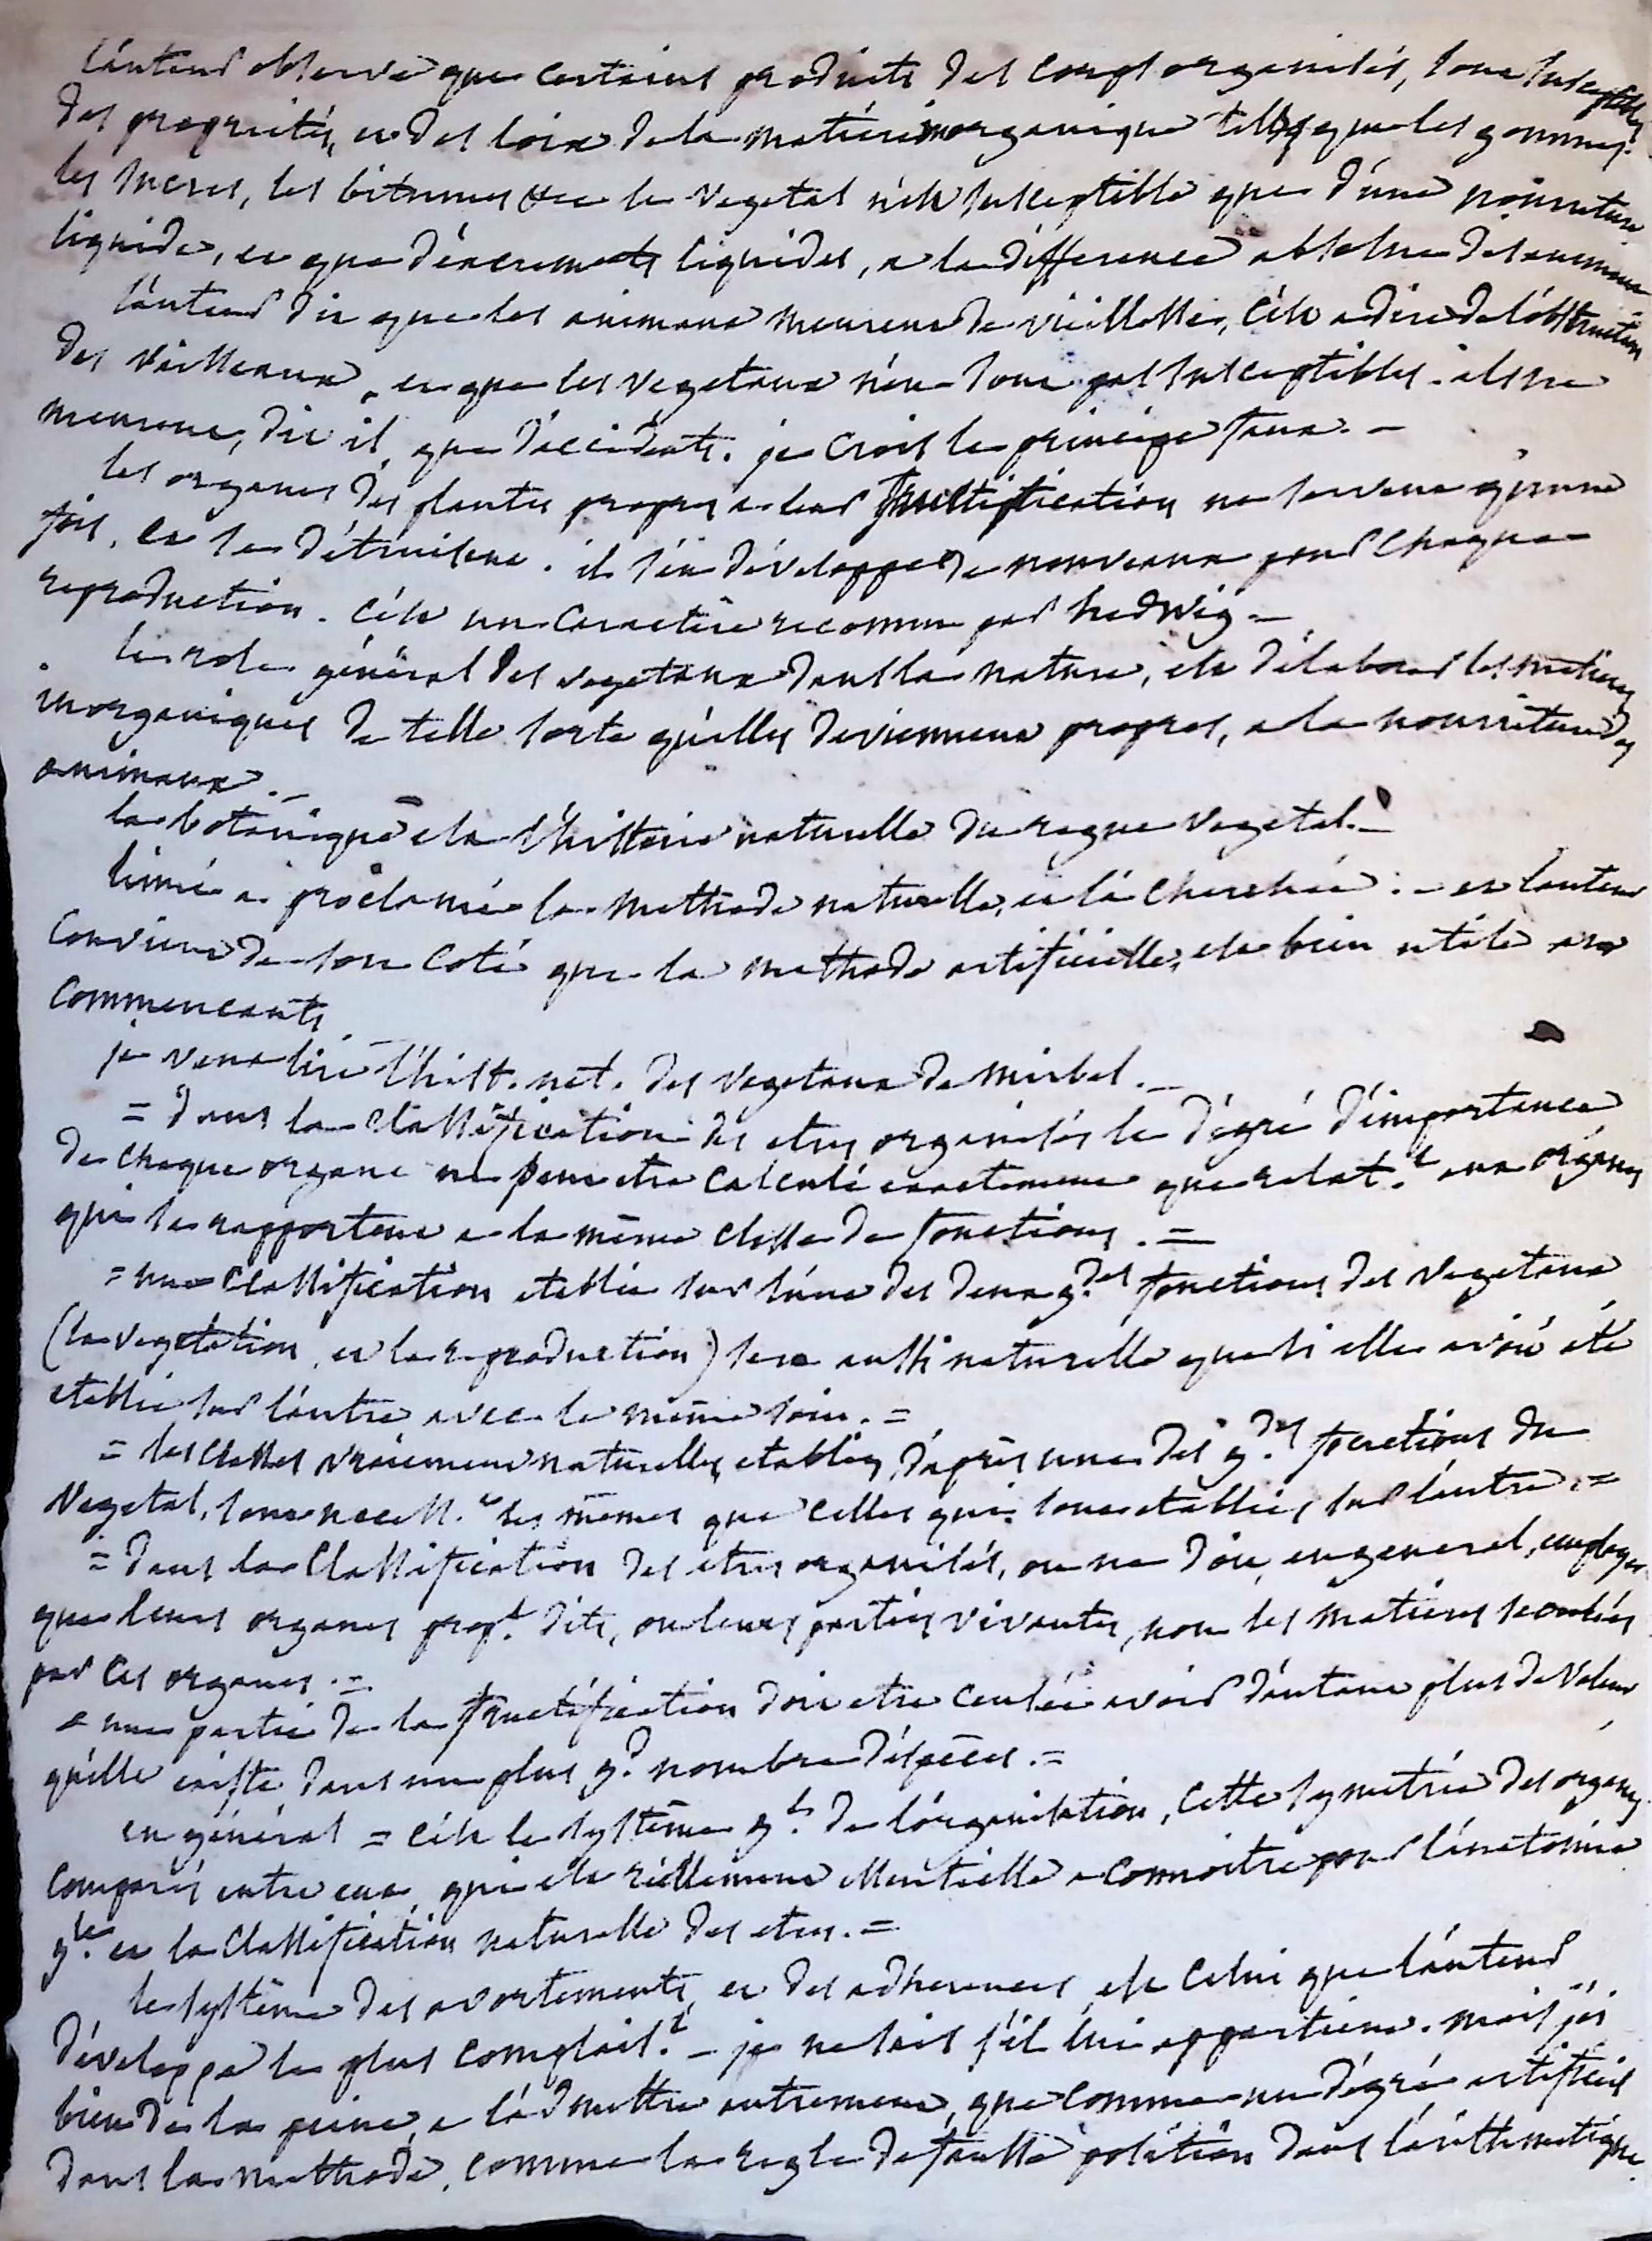 l'auteur observe que certains produits des corps organisés, sont susceptibles
des proprietés, et des loix de la matiere inorganique telles que les gommes.
les sucres, les bitumes &c le vegetal n'est susceptible que d'une nourriture
liquide, et que d'excrements liquides, a la difference absolue des animaux
l'auteur dit que les animaux meurent de vieillesse, c'est a dire de l'obstruction
des vaisseaux, et que les vegetaux n'en sont pas susceptibles. ils ne
meurent, dit il, que d'accidents. je crois le principe faux. –
les organes des plantes propres a leur fructification ne servent qu'une
fois, et se détruisent. il s'en développe de nouveaux pour chaque
reproduction. c'est un caractère reconnu par hedwig –
le role général des vegetaux dans la nature, est d'elaborer les matieres
inorganiques de telle sorte qu'elles deviennent propres, a la nourriture des
animaux. –
la botanique est l'histoire naturelle du regne vegetal. –
linné a proclamé la methode naturelle, et l'a cherchée. – et l'auteur
convient de son coté que la methode artificielle, est bien utile aux
commencants
je veux lire l'hist. nat. des vegetaux de mirbel. –
= dans la classification des etres organisés le dégré d'importance
de chaque organe ne peut etre calculé exactement que relat.t aux organes
qui se rapportent a la même classe de fonctions. =
= une classification etablie sur l'une des deux g.des fonctions des vegetaux
(la vegetation, et la reproduction) sera aussi naturelle que si elle avoit été
etablie sur l'autre avec le même soin. =
= les classes vraiement naturelles, etablies, d'après une des g.des fonctions du
vegetal, sont necess.t les mêmes que celles qui sont etablies sur l'autre. =
= dans la classification des etres organisés, on ne doit, en general, employer
que leurs organes prop.t dits, ou leurs parties vivantes, non les matieres secretées
par ces organes. =
= une partie de la fructification doit etre censée avoir d'autant plus de valeur
qu'elle existe dans un plus g.d nombre d'espèces. =
en général = c'est le système g.l de l'organisation, cette symetrie des organes
comparés entre eux, qui est réellement essentielle a connoitre pour l'anatomie
g.le et la classification naturelle des etres. =
le système des avortements, et des adherences, est celui que l'auteur
développe le plus complait.t – je ne sais s'il lui appartient. mais j'ai
bien de la peine, a l'admettre autrement, que comme un dégré artificiel
dans la methode, comme la regle de fausse position dans l'arithmetique.